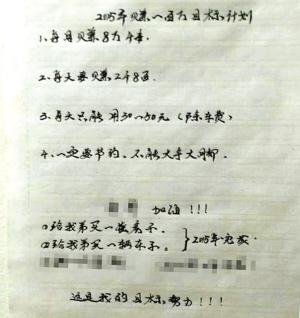 2015年赚一百万目标计划
1、每月赚8万4千.
2、每天要赚2778.
3、每天只能用30～50元(除车费)
4、一定要节约、不能大手大脚.
加油!!!
①给我弟买一套房子.
②给我弟买一辆车子。
2015年完成.
这是我的目标努力!!!